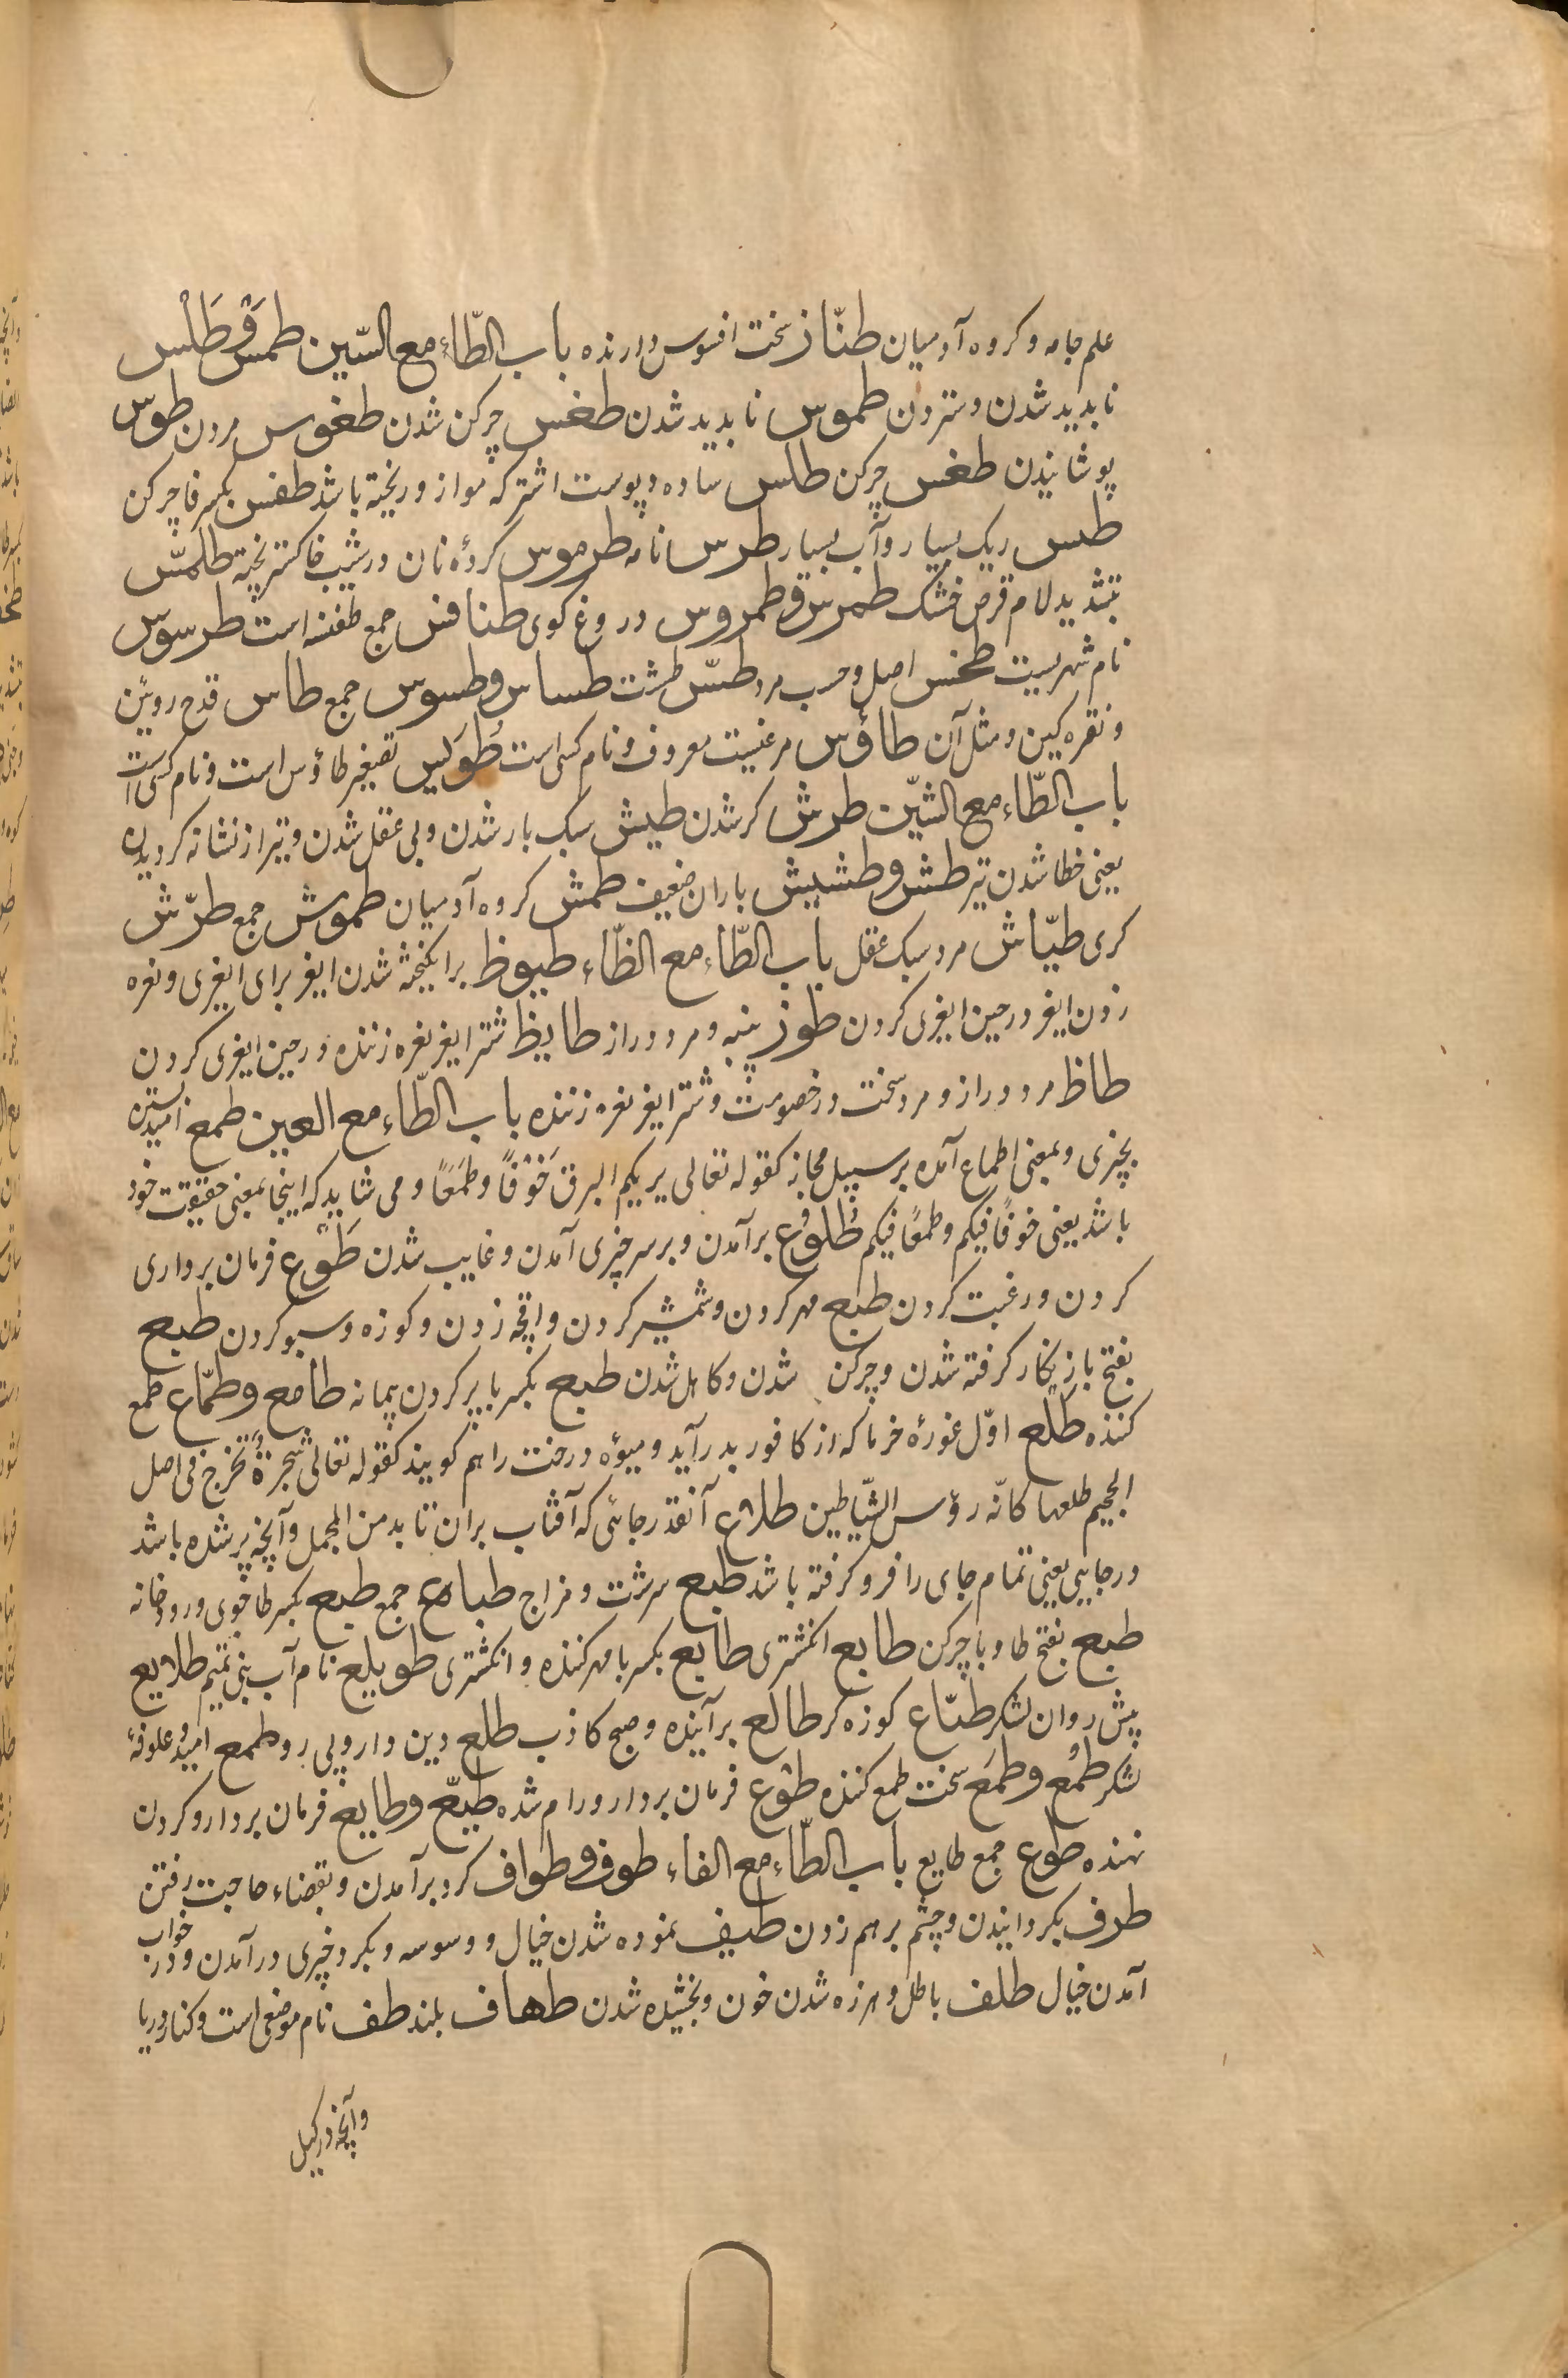 علم جامه و کروه آدمیان طنّاز سخت افسوس دارنده باب الطّاء مع السّین طمس و طلس
نابدید شدن و ستردن طموس نابدید شدن طغس چرکن شدن طغوس مردن طوس
پوشانیدن طغس چرکن طلس ساده و پوست اشتر که مو از و ریخته باشد طفس بکسر فا چرکن
طیس ریک بسیار و آب بسیار طرس نامه طرموس کردۀ نان در شیب خاکستر پخته طلمّس
بتشدید لام قرص خشک طمرس و طمروس دروغ کوی طنافس جمع طنفسه است طرسوس
نام شهریست طخس اصل و حسب مرد طسّ طشت طساس و طسوس جمع طاس قدح رویین
و نقره کین و مثل آن طاؤس مرغیست معروف و نام کسی است طُوَیس تصغیر طاؤس است و نام کسی است
باب الطّاء مع الشّین طرش کر شدن طیش سبک بار شدن و بی عقل شدن و تیر از نشانه کردیدن
یعنی خطا شدن تیر طش و طشیش باران ضعیف طمش کروه آدمیان طموش جمع طرّش
کری طیّاش مرد سبک عقل باب الطّاء مع الظّاء طیوظ برانکیخته شدن ایغر برای ایغری و نعره
زدن ایغر در حین ایغری کردن طوز پنبه و مرد دراز طایظ شتر ایغر نعره زننده در حین ایغری کردن
طاظ مرد دراز و مرد سخت در خصومت و شتر ایغر نعره زننده باب الطّاء مع العین طمع امید بستن
بچیزی و بمعنی اطماع آمده بر سبیل مجاز کقوله تعالی یریکم البرق خَوْفًا وطَمَعًا و می شاید که اینجا بمعنی حقیقت خود
باشد یعنی خوفًا فیکم و طمعًا فیکم طُلُوع برآمدن و بر سر چیزی آمدن و غایب شدن طَوْع فرمان برداری
کردن و رغبت کردن طبع مهر کردن و شمشیر کردن و اقچه زدن و کوزه و سبو کردن طبع
بفتح با زنکار کرفته شدن و چرکن شدن و کاهل شدن طبع بکسر با پر کردن پیمانه طامع و طمّاع طمع
کننده طلع اوّل غورۀ خرما که از کافور بدر آید و میوۀ درخت را هم کویند کقوله تعالی شجرةٌ تخرج فی اصل
الجحیم طلعها کانّه رؤس الشّیاطین طلاع آنقدر جائی که آفتاب بران تابد من المجمل و آنچه پر شده باشد
در جایی یعنی تمام جای را فرو کرفته باشد طبع سرشت و مزاج طباع جمع طبع بکسر طا جوی و رودخانه
طبع بفتح طا و با چرکن طابع انکشتری طابع بکسر با مهر کننده و انکشتری طویلع نام آب بنی تمیم طلایع
پیش روان لشکر طبّاع کوزه کر طالع برآینده و صبح کاذب طلع دین وار و پی رو طمع امید و علوفۀ
لشکر طمُع و طمَع سخت طمع کننده طوع فرمان بردار و رام شده طیّع و طایع فرمان بردار و کردن
نهنده طوع جمع طایع باب الطّاء مع الفاء طوف و طواف کرد برآمدن و بقضاء حاجت رفتن
طرف بکردانیدن و چشم بر هم زدن طیف نموده شدن خیال و وسوسه و بکرد چیزی درآمدن و در خواب
آمدن خیال طلف باطل و هرزه شدن خون و بخشیده شدن طهاف بلند طف نام موضعی است و کنار دریا
و آنچه در کیل